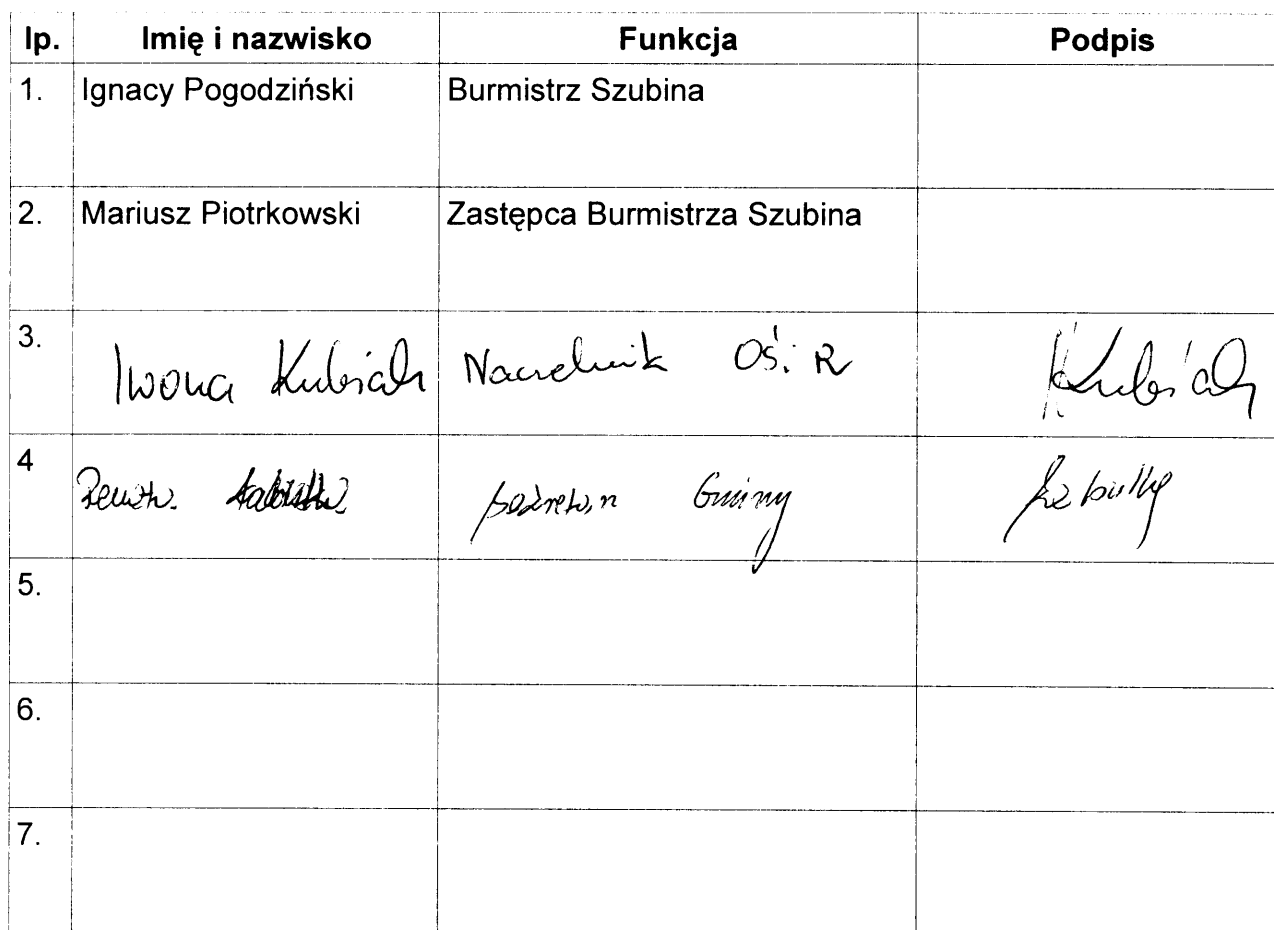 lp. Imię i nazwisko Funkcja Podpis
1. Ignacy Pogodziński Burmistrz Szubina
2. Mariusz Piotrkowski Zastępca Burmistrza Szubina
3. Iwona Kubiak Naczelnik OŚiR Kubiak
4 Gminy
5.
6.
7.